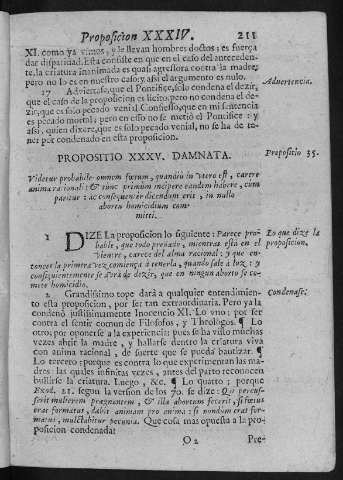 Proposicion XXXIV. 211
XI. como ya vimos; y le llevan hombres doctos; es fuerça
dar disparidad. Esta consiste en que en el caso del anteceden-
te, la criatura inanimada es quasi agressora contra la madre;
pero no lo es en nuestro caso; y assi el argumento es nulo.
17 Adviertase, que el Pontifice, solo condena el dezir,
que el caso de la proposicion es licito, pero no condena el de-
zir, que es solo pecado venial. Confiesso, que en mi sentencia
es pecado mortal; pero en esso no se metiò el Pontifice: y
assi, quien dixere, que es solo pecado venial, no se ha de te-
ner por condenado en esta proposicion.
Advertencia.
PROPOSITIO XXXV. DAMNATA.
Propositio 35.
Videtur probabile omnem fœtum, quandiù in vtero est, carere
anima rationali: & tunc primùm incipere eandem habere, cum
paritur: ac consequenter dicendum erit, in nullo
abortu homicidium com-
mitti.
1 DIZE La proposicion lo siguiente: Parece pro-
bable, que todo preñado, mientras està en el
vientre, carece del alma racional: y que en-
tonces la primera vez comiença à tenerla, quando sale à luz; y
consequentemente se avrà de dezir, que en ningun aborto se co-
mete homicidio.
Lo que dize la
proposicion.
2 Grandissimo tope darà a qualquier entendimien-
to esta proposicion, por ser tan extraordinaria. Pero ya la
condenò justissimamente Inocencio XI. Lo vno; por ser
contra el sentir comun de Filosofos, y Theologos. ¶ Lo
otro; por oponerse a la experiencia; pues se ha visto muchas
vezes abrir la madre, y hallarse dentro la criatura viva
con anima racional, de suerte que se pueda bautizar. ¶
Lo tercero; porque es contra lo que experimentan las ma-
dres: las quales infinitas vezes, antes del parto reconocen
bullirse la criatura. Luego, &c. ¶ Lo quarto; porque
Exod. 21. segun la version de los 70. se dize: Qui percus-
serit mulierem prægnantem, & illa abortum fecerit, si fœtus
erat formatus, dabit animam pro anima: si nondum erat for-
matus, mulctabitur pecunia. Que cosa mas opuesta a la pro-
posicion condenada?
Condenase.
O 2 Pre-